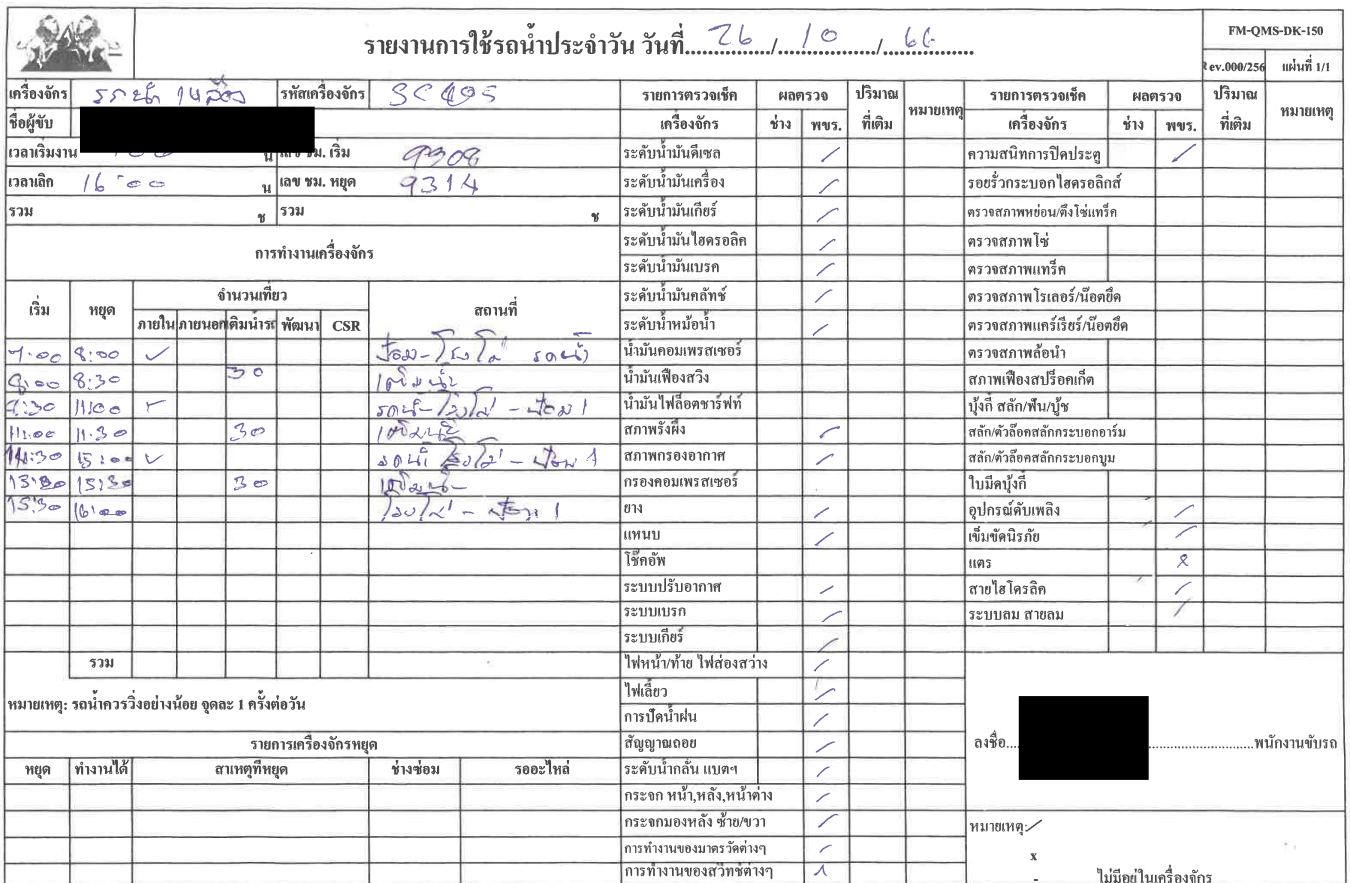 รายงานการใช้รถน้ำประจำวัน วันที่ 26 / 10 / 66
FM-QMS-DK-150
Rev.000/256 แผ่นที่ 1/1
เครื่องจักร รถน้ำ 14ล้อ รหัสเครื่องจักร SC495
ชื่อผู้ขับ
เวลาเริ่มงาน น เลข ชม. เริ่ม 9308
เวลาเลิก 16:00 น เลข ชม. หยุด 9314
รวม ช รวม ช
การทำงานเครื่องจักร
เริ่ม หยุด จำนวนเที่ยว สถานที่
ภายใน ภายนอก เติมน้ำรถ พัฒนา CSR
7:00 8:00 ✓ ป้อม-โรงโม่ รถน้ำ
8:00 8:30 30 เติมน้ำ
11:00 ✓ รถน้ำ-โรงโม่ - ป้อม 1
11:00 11:30 30 เติมน้ำ
15:00 ✓ รถน้ำ โรงโม่ - ป้อม 1
15:30 30 เติมน้ำ
15:30 16:00 โรงโม่ - ป้อม 1
รวม
หมายเหตุ: รถน้ำควรวิ่งอย่างน้อย จุดละ 1 ครั้งต่อวัน
รายการเครื่องจักรหยุด
หยุด ทำงานได้ สาเหตุที่หยุด ช่างซ่อม รออะไหล่
รายการตรวจเช็ค ผลตรวจ ปริมาณ หมายเหตุ
เครื่องจักร ช่าง พขร. ที่เติม
ระดับน้ำมันดีเซล /
ระดับน้ำมันเครื่อง /
ระดับน้ำมันเกียร์ /
ระดับน้ำมันไฮดรอลิค /
ระดับน้ำมันเบรค /
ระดับน้ำมันคลัทช์ /
ระดับน้ำหม้อน้ำ /
น้ำมันคอมเพรสเซอร์
น้ำมันเฟืองสวิง
น้ำมันไฟล็อตชาร์ฟท์
สภาพรังผึ้ง /
สภาพกรองอากาศ /
กรองคอมเพรสเซอร์
ยาง /
แหนบ /
โช๊คอัพ
ระบบปรับอากาศ /
ระบบเบรก /
ระบบเกียร์ /
ไฟหน้า/ท้าย ไฟส่องสว่าง /
ไฟเลี้ยว /
การปัดน้ำฝน /
สัญญาณถอย /
ระดับน้ำกลั่น แบตฯ /
กระจก หน้า,หลัง,หน้าต่าง /
กระจกมองหลัง ซ้าย/ขวา /
การทำงานของมาตรวัดต่างๆ /
การทำงานของสวิทช์ต่างๆ
รายการตรวจเช็ค ผลตรวจ ปริมาณ หมายเหตุ
เครื่องจักร ช่าง พขร. ที่เติม
ความสนิทการปิดประตู /
รอยรั่วกระบอกไฮดรอลิกส์
ตรวจสภาพหย่อน/ตึงโซ่แทร็ค
ตรวจสภาพโซ่
ตรวจสภาพแทร็ค
ตรวจสภาพโรเลอร์/น๊อตยึด
ตรวจสภาพแคร์เรียร์/น๊อตยึด
ตรวจสภาพล้อนำ
สภาพเฟืองสปร็อคเก็ต
บุ้งกี๋ สลัก/ฟัน/บู้ช
สลัก/ตัวล๊อคสลักกระบอกอาร์ม
สลัก/ตัวล๊อคสลักกระบอกบูม
ใบมีดบุ้งกี๋
อุปกรณ์ดับเพลิง /
เข็มขัดนิรภัย /
แตร
สายไฮโดรลิค /
ระบบลม สายลม /
ลงชื่อ พนักงานขับรถ
หมายเหตุ: /
x
- ไม่มีอยู่ในเครื่องจักร